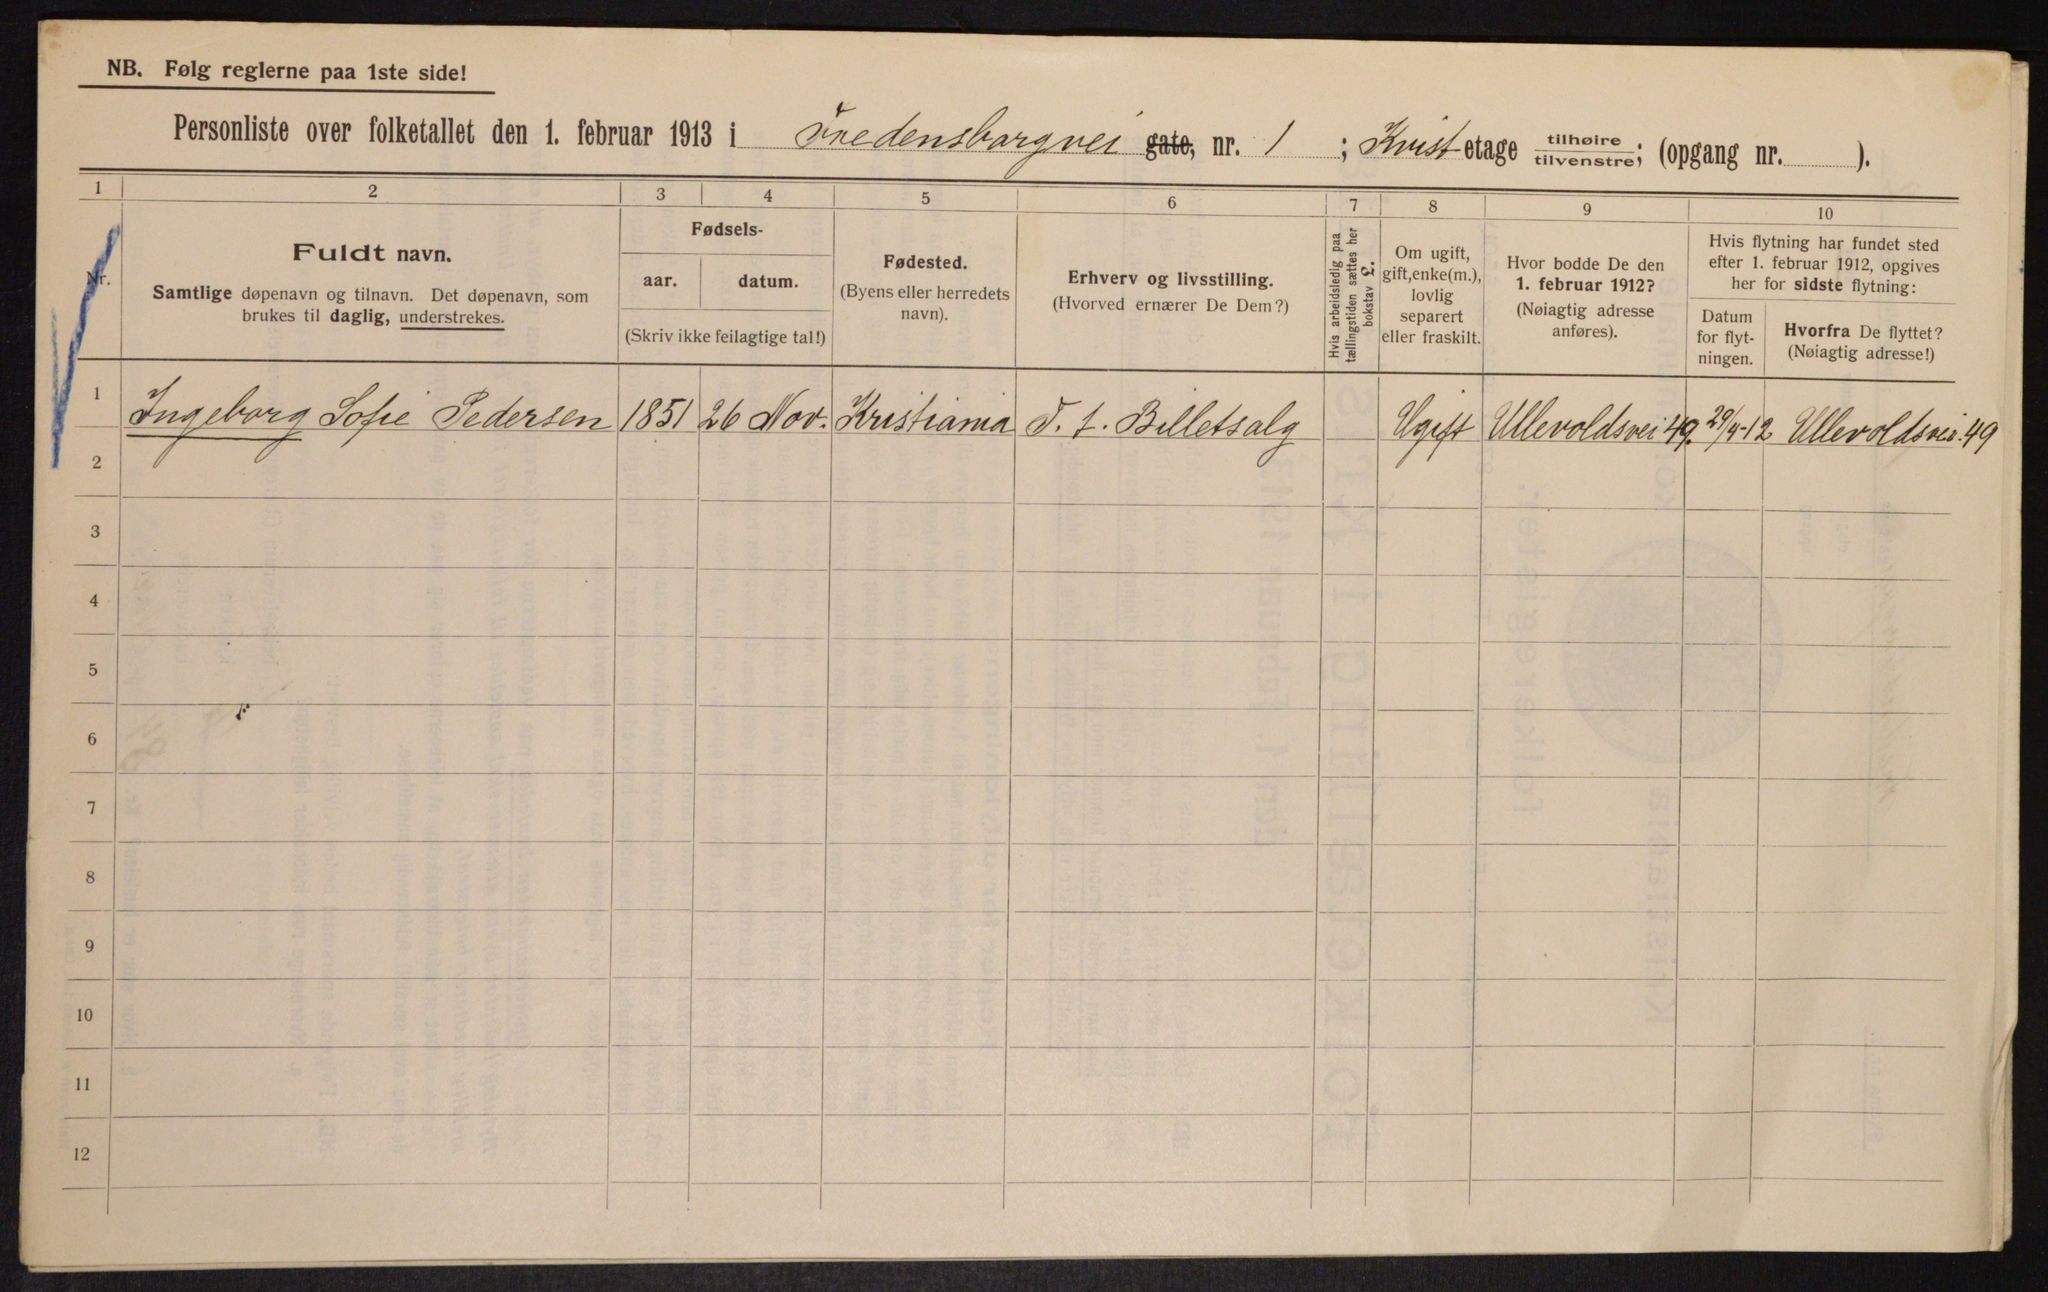 NB. Følg reglerne paa 1ste side!
Personliste over folketallet den 1. februar 1913 i Fredensborgvei gate, nr. 1 ; Kvist etage tilhøire tilvenstre; (opgang nr. ).
1 2 3 4 5 6 7 8 9 10
Nr.
Fuldt navn.
Samtlige døpenavn og tilnavn. Det døpenavn, som
brukes til daglig, understrekes.
Fødsels-
aar. datum.
(Skriv ikke feilagtige tal!)
Fødested.
(Byens eller herredets
navn).
Erhverv og livsstilling.
(Hvorved ernærer De Dem?)
Hvis arbeidsledig paa
tællingstiden sættes her
bokstav L.
Om ugift,
gift, enke(m.),
lovlig
separert
eller fraskilt.
Hvor bodde De den
1. februar 1912?
(Nøiagtig adresse
anføres).
Hvis flytning har fundet sted
efter 1. februar 1912, opgives
her for sidste flytning:
Datum
for flyt-
ningen.
Hvorfra De flyttet?
(Nøiagtig adresse!)
1 Ingeborg Sofie Pedersen 1851 26 Nov. Kristiania T. f. Billetsalg Ugift Ullevoldsvei 49. 29/4-12 Ullevoldsvei 49
2
3
4
5
6
7
8
9
10
11
12